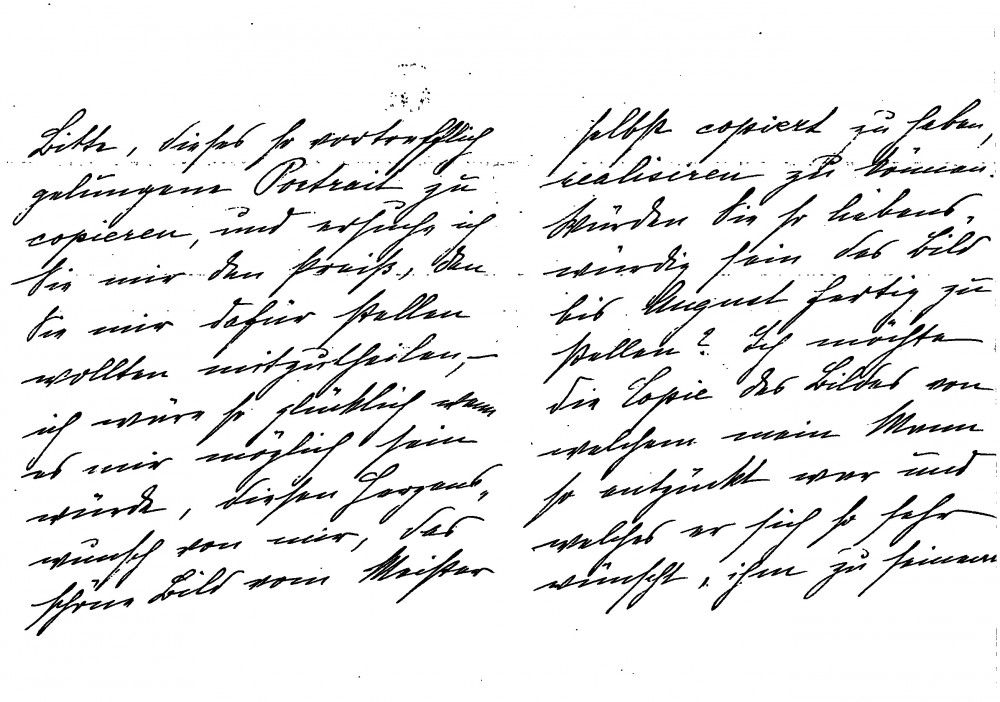 Bitte, dieses so vortrefflich
gelungene Portrait zu
copieren, und ersuche ich
Sie mir den Preiß, den
Sie mir dafür stellen
wollten mitzutheilen, –
ich wäre so glücklich wenn
es mir möglich sein
würde, diesen Herzens-
wunsch von mir, das
schöne Bild vom Meister
selbst copiert zu haben,
realisiren zu können.
Würden Sie so liebens-
würdig sein das Bild
bis August fertig zu
stellen? Ich möchte
die Copie des Bildes von
welchem mein Mann
so entzückt war und
welches er sich so sehr
wünscht, ihm zu seinem